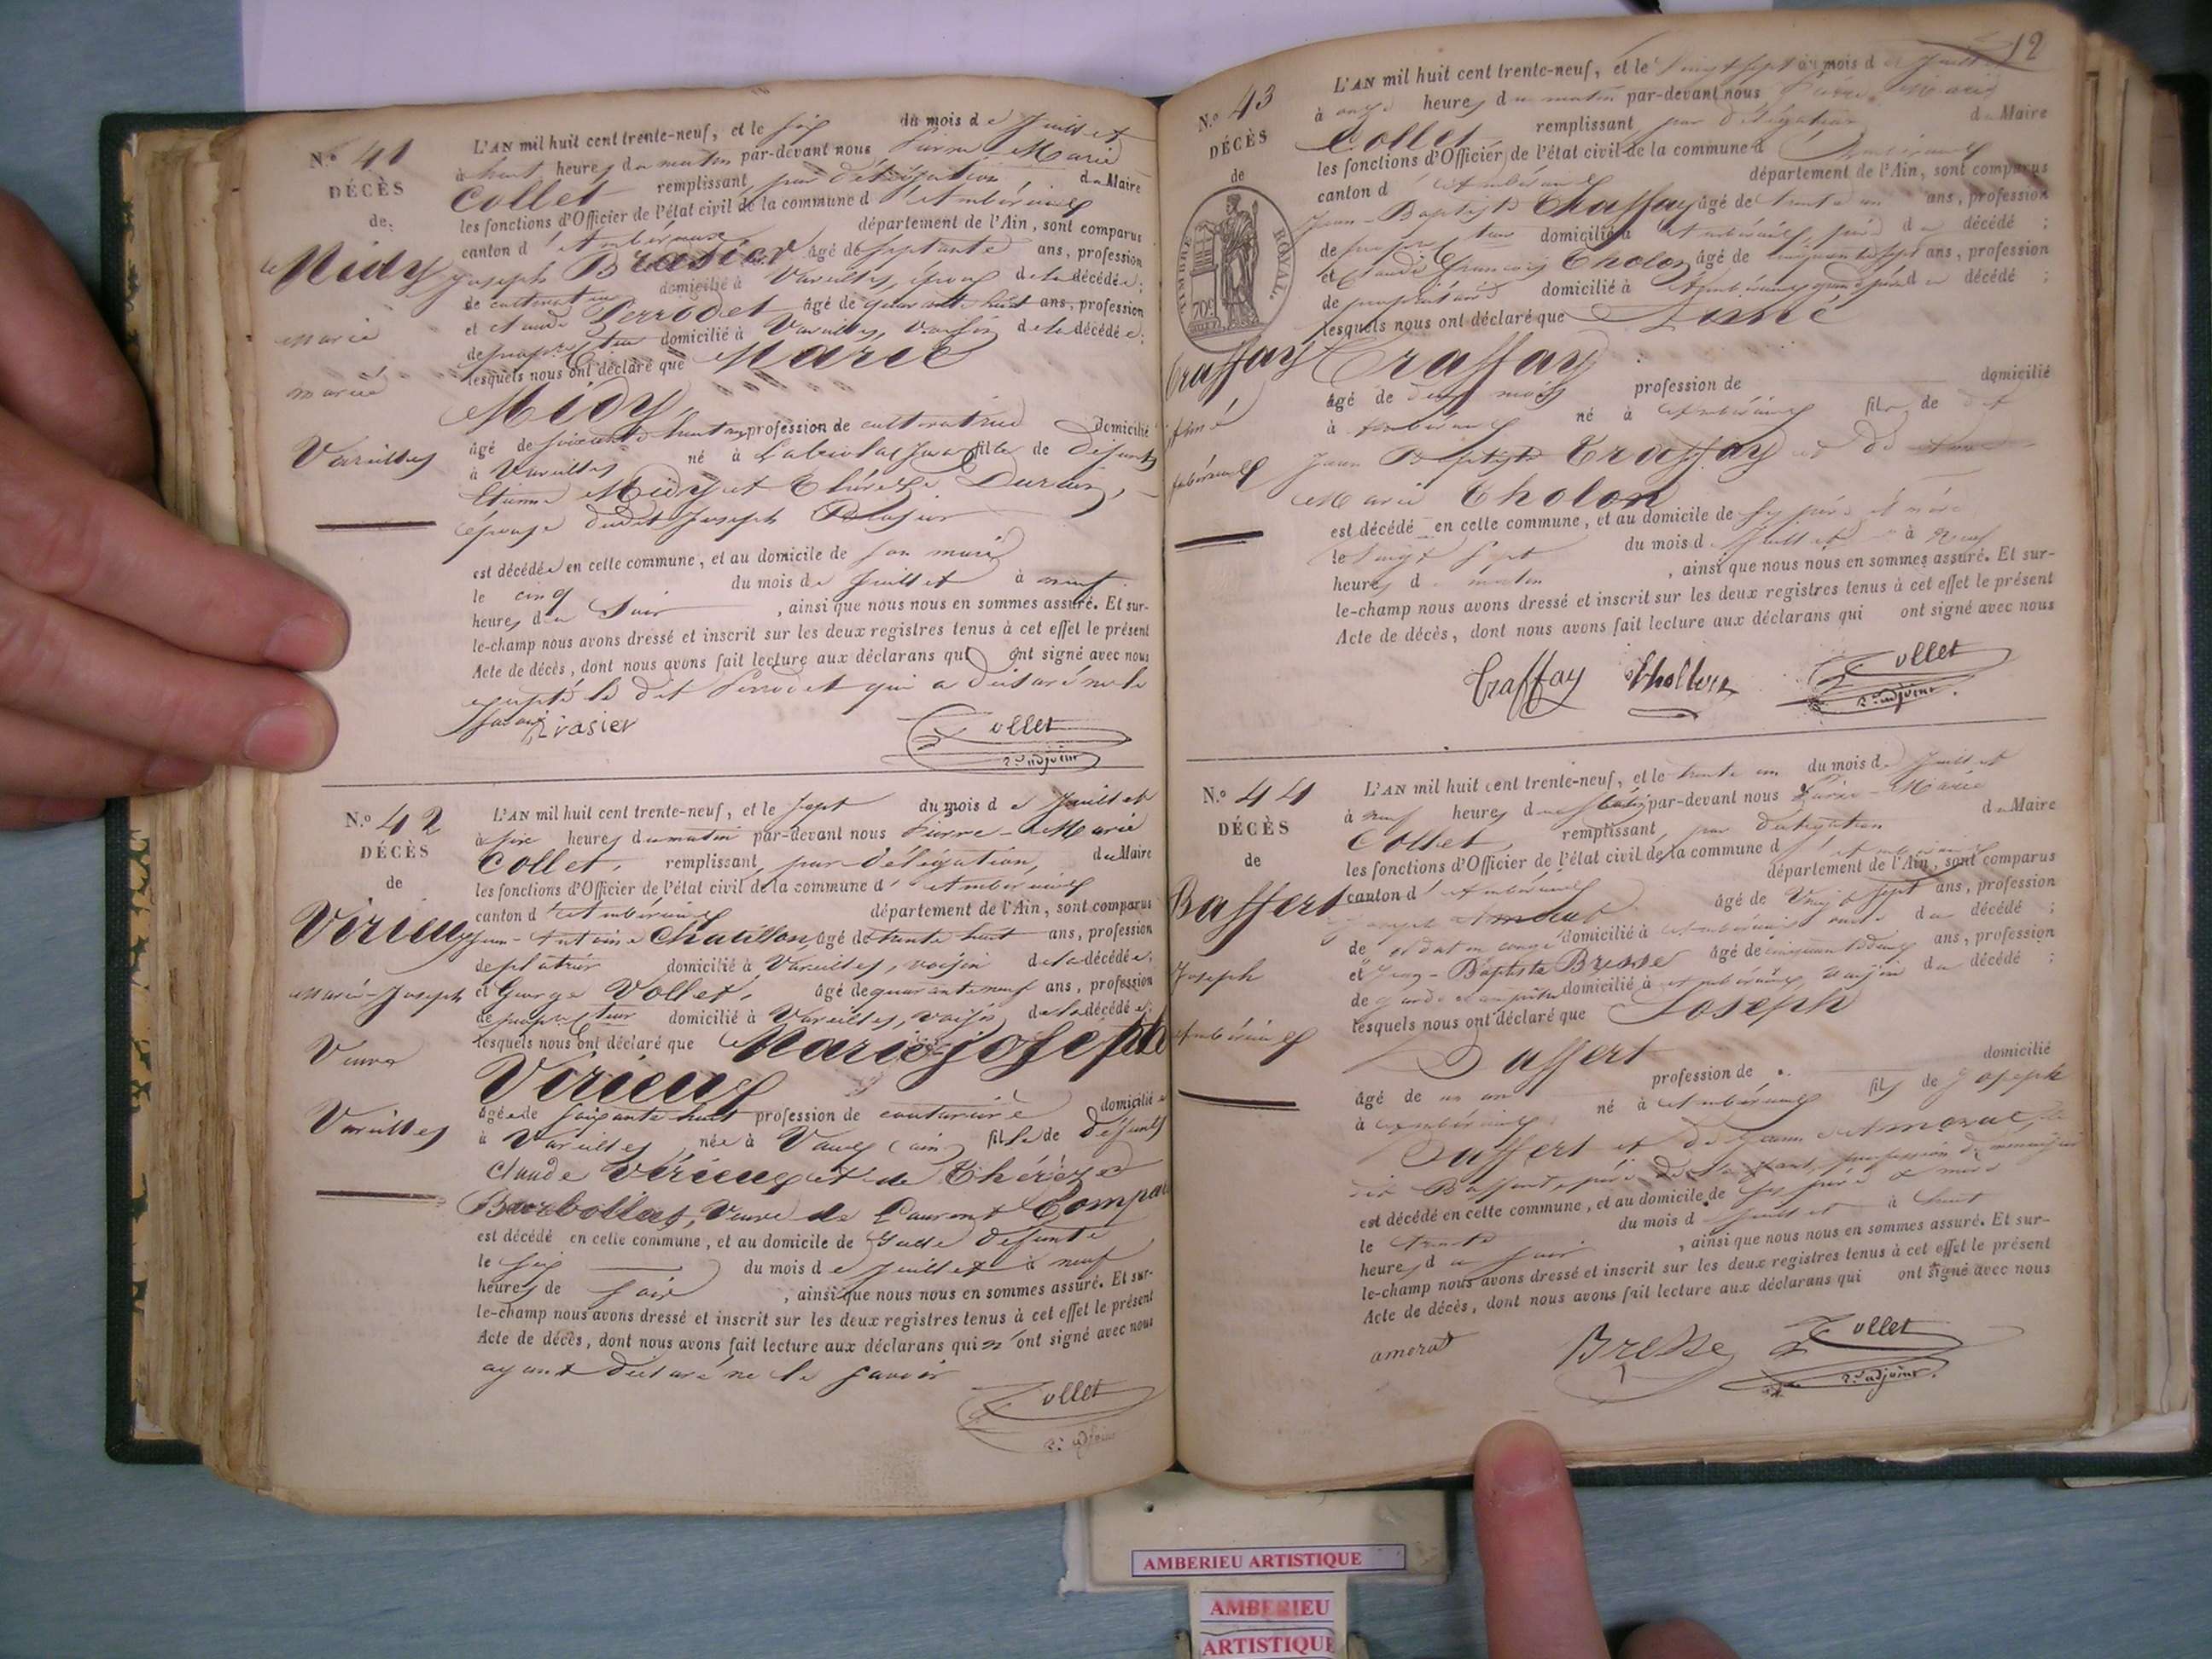 N.º 41
DÉCÈS
de
Midy
Marie
mariée
Vareilles
L'AN mil huit cent trente-neuf, et le six du mois de Juillet
à huit heures du matin par-devant nous Pierre-Marie
Collet remplissant par délégation du Maire
les fonctions d'Officier de l'état civil de la commune d'Ambérieux
canton d'Ambérieux département de l'Ain, sont comparus
Joseph Brasier âgé de septante ans, profession
de cultivateur domicilié à Vareilles, époux de la décédée;
et Claude Perrodet âgé de quarante huit ans, profession
de domicilié à Vareilles, voisin de la décédée;
lesquels nous ont déclaré que Marie
Midy
âgé de soixante huit ans profession de cultivatrice domicilié
à Vareilles né à fille de défunts
Etienne Midy et Thérèze
épouse dudit Joseph Brasier
est décédée en cette commune, et au domicile de son mari
le cinq du mois de Juillet à neuf
heures du soir, ainsi que nous nous en sommes assuré. Et sur-
le-champ nous avons dressé et inscrit sur les deux registres tenus à cet effet le présent
Acte de décès, dont nous avons fait lecture aux déclarans qui ont signé avec nous
excepté le dit Perrodet qui a déclaré ne le
savoir
Brasier Collet
2.e adjoint
N.º 42
DÉCÈS
de
Virieux
Marie-Joseph
Veuve
Vareilles
L'AN mil huit cent trente-neuf, et le sept du mois de Juillet
à six heures du matin par-devant nous Pierre-Marie
Collet, remplissant par délégation, du Maire
les fonctions d'Officier de l'état civil de la commune d'Ambérieux
canton d'Ambérieux département de l'Ain, sont comparus
Jean-Antoine Chatillon, âgé de trente huit ans, profession
de plâtrier domicilié à Vareilles, voisin de la décédée;
et George Vollet, âgé de quarante neuf ans, profession
de domicilié à Vareilles, voisin de la décédée;
lesquels nous ont déclaré que Marie josephte
Virieux
âgée de soixante huit profession de couturière domicilié
à Vareilles née à Vaux (ain) fille de défunts
Claude Virieux et de Thérèze
Barbollat, Veuve de Laurent
est décédé en cette commune, et au domicile de ladite défunte
le six du mois de Juillet à neuf
heures de soir, ainsi que nous nous en sommes assuré. Et sur-
le-champ nous avons dressé et inscrit sur les deux registres tenus à cet effet le présent
Acte de décès, dont nous avons fait lecture aux déclarans qui n'ont signé avec nous
ayant déclaré ne le savoir
Collet
2.e adjoint
12
N.º 43
DÉCÈS
de
TIMBRE ROYAL.
70c
Traffay
Aimé
Ambérieux
L'AN mil huit cent trente-neuf, et le vingt sept du mois de Juillet
à onze heures du matin par-devant nous Pierre-Marie
Collet remplissant par délégation du Maire
les fonctions d'Officier de l'état civil de la commune d'Ambérieux
canton d'Ambérieux département de l'Ain, sont comparus
Jean-Baptiste Traffay âgé de trente un ans, profession
de domicilié à Ambérieux, père du décédé;
et Claude François Tholon âgé de cinquante sept ans, profession
de propriétaire domicilié à Ambérieux, grand père du décédé;
lesquels nous ont déclaré que Aimé
Traffay
âgé de deux mois profession de domicilié
à Ambérieux né à Ambérieux fils de dit
Jean Baptiste Traffay et de
Marie Tholon
est décédé en cette commune, et au domicile de ses père et mère
le vingt sept du mois de Juillet à neuf
heures du matin, ainsi que nous nous en sommes assuré. Et sur-
le-champ nous avons dressé et inscrit sur les deux registres tenus à cet effet le présent
Acte de décès, dont nous avons fait lecture aux déclarans qui ont signé avec nous
Traffay Thollon Collet
2.e adjoint
N.º 44
DÉCÈS
de
Baffert
Joseph
Ambérieux
L'AN mil huit cent trente-neuf, et le trente un du mois de Juillet
à neuf heures du matin par-devant nous Pierre-Marie
Collet, remplissant par délégation du Maire
les fonctions d'Officier de l'état civil de la commune d'Ambérieux
canton d'Ambérieux département de l'Ain, sont comparus
Joseph âgé de vingt sept ans, profession
de soldat en congé domicilié à Ambérieux oncle du décédé;
et Jean-Baptiste Bresse âgé de cinquante deux ans, profession
de garde champêtre domicilié à Ambérieux, voisin du décédé;
lesquels nous ont déclaré que Joseph
Baffert
âgé de un an profession de domicilié
à Ambérieux né à Ambérieux fils de Joseph
Baffert et de
est décédé en cette commune, et au domicile de ses père et mère
le trente du mois de Juillet à huit
heures du soir, ainsi que nous nous en sommes assuré. Et sur-
le-champ nous avons dressé et inscrit sur les deux registres tenus à cet effet le présent
Acte de décès, dont nous avons fait lecture aux déclarans qui ont signé avec nous
Bresse Collet
2.e adjoint
AMBERIEU ARTISTIQUE
AMBERIEU
ARTISTIQUE